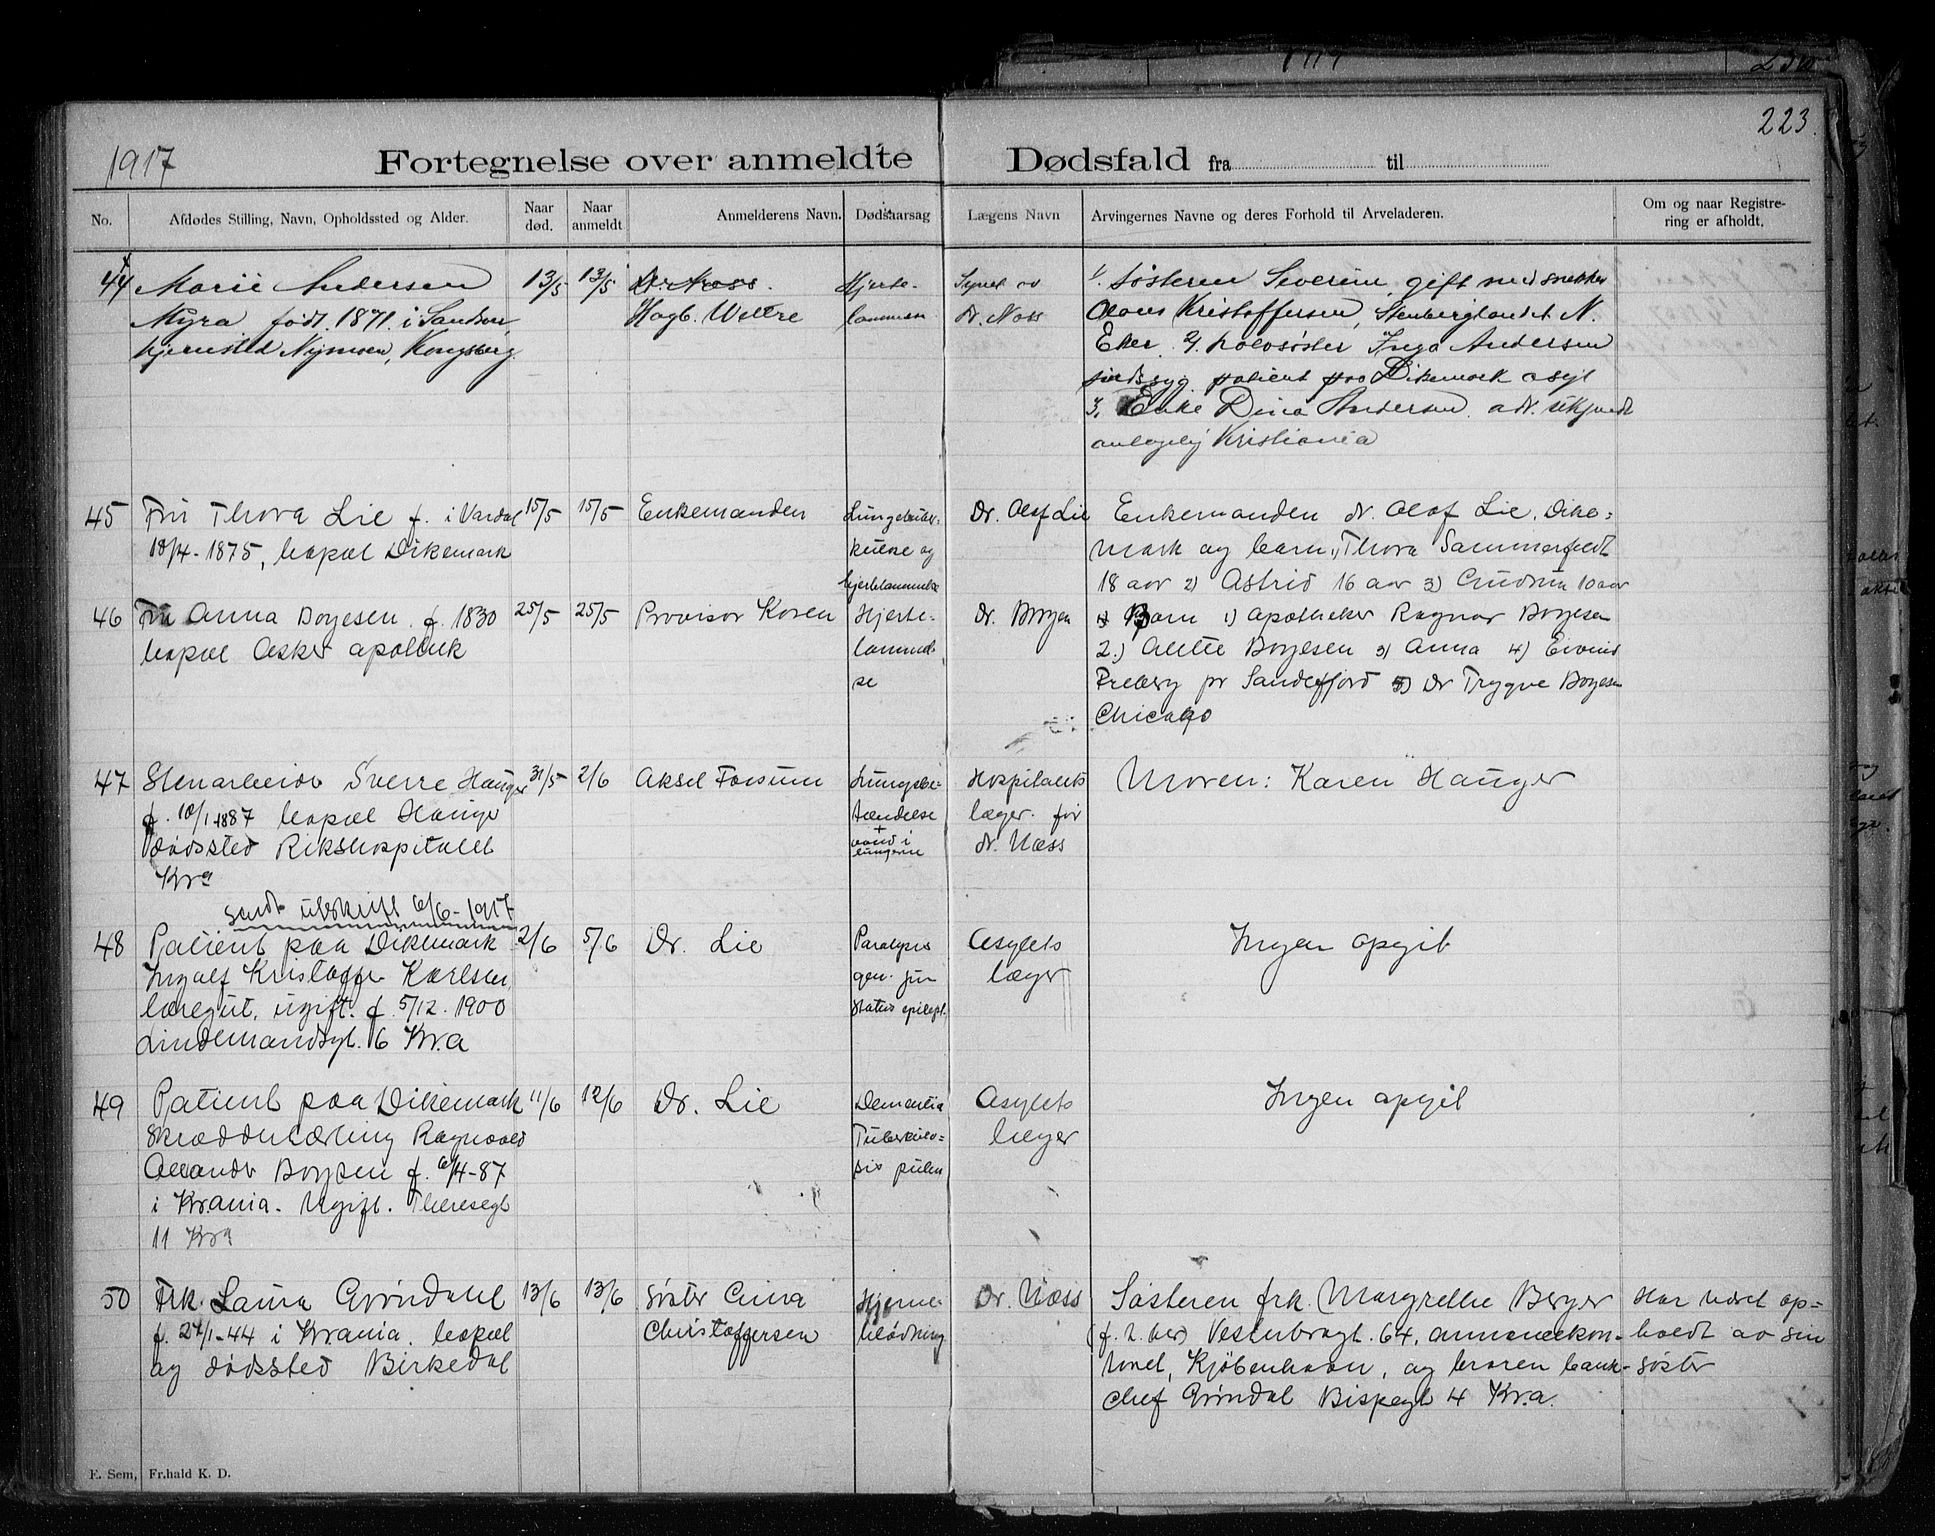 223.
1917 Fortegnelse over anmeldte Dødsfald fra til
No. Afdødes Stilling, Navn, Opholdssted og Alder. Naar død. Naar anmeldt Anmelderens Navn. Dødsaarsag Lægens Navn Arvingernes Navne og deres Forhold til Arveladeren. Om og naar Registrering er afholdt.
44 Marie Andersen 13/5 13/5 Dr. Næss. Hjerte-
Myra født 1871 i Sandsvær Hagb. Wettre lammelse
hjemsted Nymoen, Kongsberg
Synet av
dr. Næss
1. Søsteren Severine gift med snekker
Olaus Kristoffersen, Stenberglandet N.
Eker 2. halvsøster Inga Andersen
sindssyg patient paa Dikemark asyl
3. Enke Dina Andersen adr.
Kristiania
45 Fru Thora Lie f. i Vardal 15/5 15/5 Enkemanden
18/4-1875, bopæl Dikemark
Lungetuber-
kulose og
hjertelammelse
Dr. Olaf Lie
Enkemanden dr. Olaf Lie, Dike-
mark og barn 1) Thora Sammerfeldt
18 aar 2) Astrid 16 aar 3) Gudrun 10 aar
46 Fru Anna Borgesen f. 1830 25/5 25/5 Provisor Koren
bopæl Asker apothek
Hjerte-
lammel-
se
Dr. Borgen
Barn 1) Apotheker Ragnar Borgesen
2.) Alette Borgesen 3) Anna 4) Eivind
Freberg pr Sandefjord 5) Dr Trygve Borgesen
Chicago
47 Stenarbeider Sverre Hauger 31/5 2/6 Aksel Forsum
f. 10/1 1887 bopæl Hauger
Dødssted Rikshospitalet
Kra
Lungebe-
tændelse
+
vand i
lungerne
Hospitalets
læger for
dr. Næss
Moren: Karen Hauger
sendt utskrift 6/6-1917
48 Patient paa Dikemark 2/6 5/6 Dr. Lie
Ingolf Kristoffer Karlsen
løregut, ugift. f. 5/12. 1900
Lindemandsgt. 6 Kr.a
Paralysis
gen. juv
Status epilept.
Asylets
læger
Ingen opgit
49 Patient paa Dikemark 11/6 12/6 Dr. Lie
Skrædderlærling Ragnvald
Alexander Borgsen f. 6/4-87
i Krania. Ugift. Theresegt
11 Kra
Dementia
Tuberkulo-
sis pulm
Asylets
læger
Ingen opgit
50 Frk. Laura Grøndahl 13/6 13/6 Søster Anna
f. 24/1-44 i Krania. bopæl Christoffersen
og dødssted Birkedal
Hjerne-
blødning
Dr. Næss
Søsteren frk. Margrethe Berger
(f. 2. ) Vesterbrogt. 64,
Kjøbenhavn, og broren bank-
chef Grøndal Bispegt 4 Kr.a.
Har været op-
holdt av sin
søster
E. Sem, Fr.hald K. D.